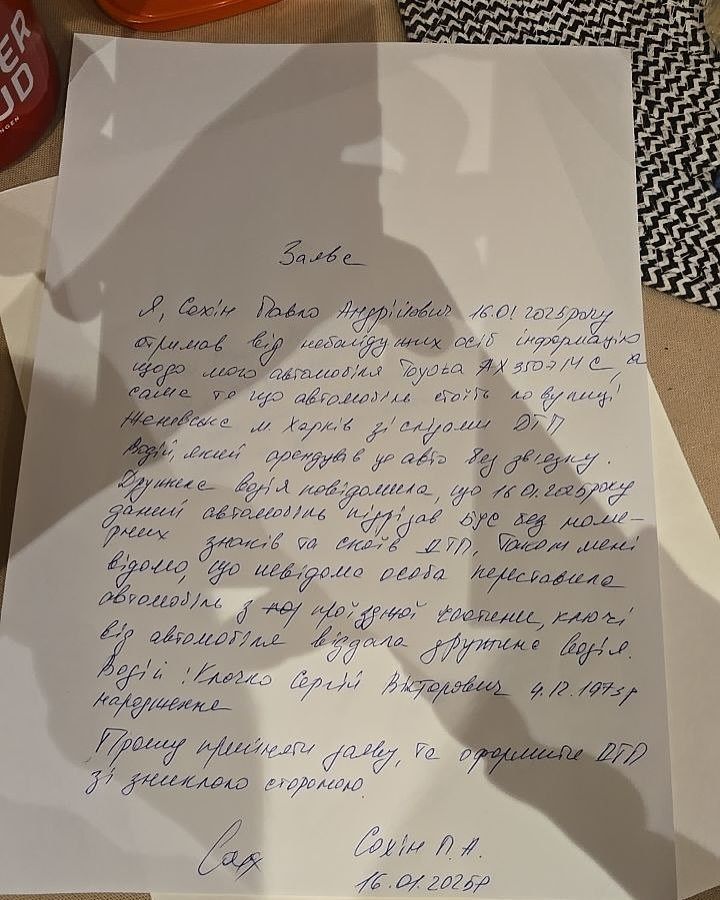 ER
UD
NGEN
Заява
Я, Сохін Павло Андрійович 16.01.2025року
отримав від небайдужих осіб інформацію
щодо мого автомобіля Toyota AX3507MC, а
саме те що автомобіль стоїть по вулиці
Женевська м. Харків зі слідами ДТП
Водій, який орендував це авто без звʼязку.
Дружина водія повідомила, що 16.01.2025року
даний автомобіль підрізав БУС без номе-
рних знаків та скоїв ДТП, також мені
відомо, що невідома особа переставила
автомобіль з проїздної частини, ключі
від автомобіля віддала дружине водія.
Водій: Клочко Сергій Вікторович 4.12.1973р
народження
Прошу прийняти заяву, та оформити ДТП
зі зниклою стороною.
Сохін П.А.
16.01.2025р